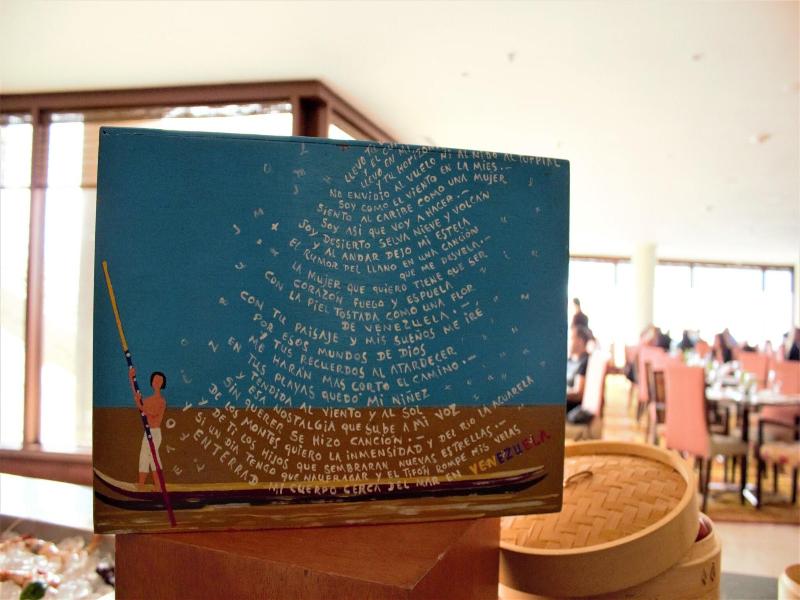 LLEVO TU
Y EL C
LLEVO EN MI
Y TU HORIZON NI AL NIDO AL TURPIAL
NO ENVIDIO AL VUELO
SOY COMO EL VIENTO EN LA MIES.-
SIENTO AL CARIBE COMO UNA MUJER
SOY ASÍ QUE VOY A HACER.-
SOY DESIERTO SELVA NIEVE Y VOLCAN
Y AL ANDAR DEJO MI ESTELA
EL RUMOR DEL LLANO EN UNA CANCIÓN
QUE ME DESVELA.-
LA MUJER QUE QUIERO TIENE QUE SER
CORAZÓN FUEGO Y ESPUELA
CON LA PIEL TOSTADA COMO UNA FLOR
DE VENEZUELA.-
CON TU PAISAJE Y MIS SUEÑOS ME IRÉ
POR ESOS MUNDOS DE DIOS
Y TUS RECUERDOS AL ATARDECER
ME HARÁN MAS CORTO EL CAMINO.-
EN TUS PLAYAS QUEDÓ MI NIÑEZ
TENDIDA AL VIENTO Y AL SOL
Y ESA NOSTALGIA QUE SUBE A MI VOZ
SIN QUERER SE HIZO CANCIÓN.-
DE LOS MONTES QUIERO LA INMENSIDAD Y DEL RIO LA ACUARELA
Y DE TI LOS HIJOS QUE SEMBRARAN NUEVAS ESTRELLAS.-
Y SI UN DIA TENGO QUE NAUFRAGAR Y EL TIFÓN ROMPE MIS VELAS
ENTERRAD MI CUERPO CERCA DEL MAR EN VENEZUELA